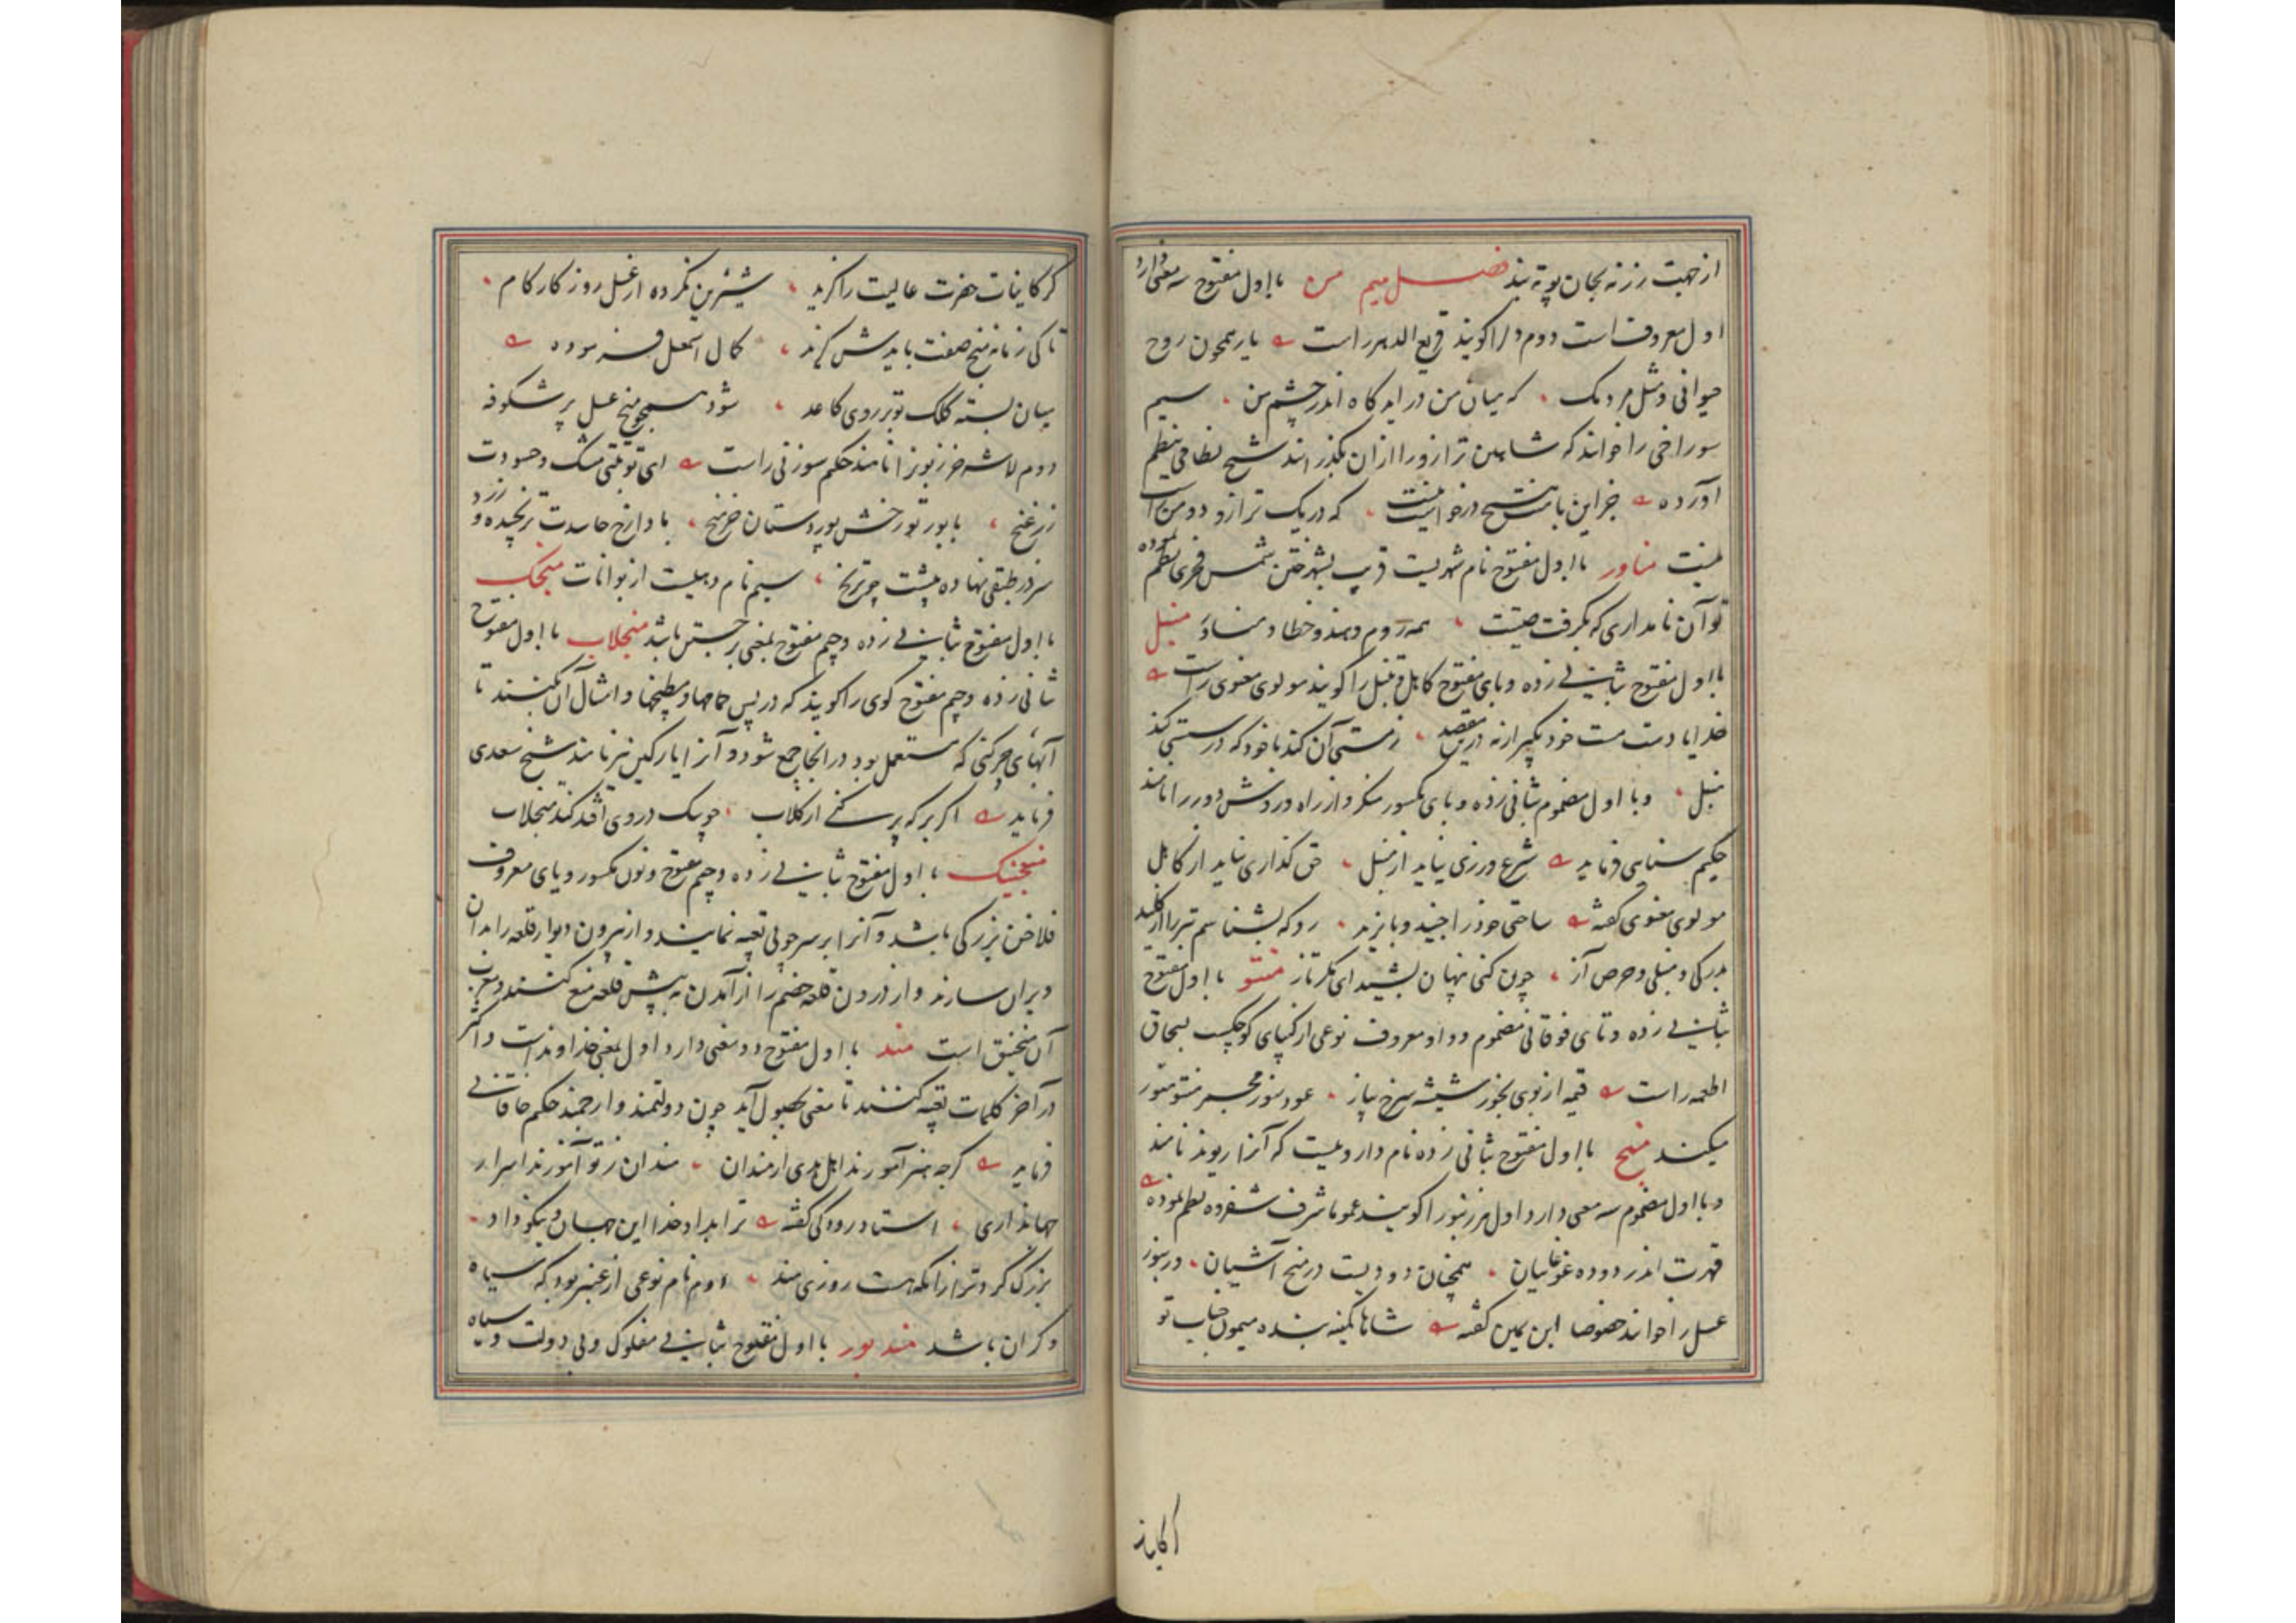 از جهت رزنه بجان پویه بند فصل میم من با اول مفتوح سه معنی دارد
اول معروفست دوم دل را کویند قریع الدهر راست یار همچون روح
حیوانی و مثل مردمک که میان من در آید کاه اندر چشم من سیم
سوراخی را خوانند که شاهین ترازو را ازان بگذرانند شیخ نظامی بنظم
آورده جز این با منش هیچ درخواست نیست که در یک ترازو دو من راست
نیست مناور با اول مفتوح نام شهریست قریب بشهر ختن شمس فخری بنظم نموده
تو آن نامداری که بگرفت صیتت همه روم و هند و خطا و مناور منبل
با اول مفتوح بثانی زده و بای مفتوح کاهل و تنبل را کویند مولوی معنوی راست
خدایا دست مست خود بگیر ارنه درین مقصد ز مستی آن کند با خود که در مستی کند
منبل و با اول مضموم بثانی زده و بای مکسور منکر و از راه و روش دور را نامند
حکیم سنایی فرماید شرع ورزی نیاید از منبل حق کذاری نیاید از کاهل
مولوی معنوی کفته ساختی خود را جنید و بایزید رو که بشناسم تبر را از کلید
بدرکی و منبلی و حرص آز چون کنی پنهان بشید ای مکرساز منتو با اول مفتوح
بثانی زده و تای فوقانی مضموم و واو معروف نوعی از کیپای کوچکست بسحاق
اطعمه راست قیمه از بوی بخور شیشه سرخ پیاز عود سوز مجمر منتو منور
میکند منج با اول مفتوح بثانی زده نام دارویست که آنرا ریوند نامند
و با اول مضموم سه معنی دارد اول هر زنبور را کویند عموما شرف شفروه نظم نموده
قهرت اندر دوده غوغاییان همچنان دودیست در منج آشیان و زنبور
عسل را خوانند خصوصا ابن یمین کفته شاها کمینه بنده میمون جناب تو
کز کاینات حضرت عالیت را کزید شیرین نکرده از عسل روزکار کام
تا کی زمانه منج صفت بایدش کزید کمال اسمعیل فرموده
میان بسته کلک تو بر روی کاغد شود همچو منج عسل پر شکوفه
دوم لاشه خر زبون را نامند حکیم سوزنی راست ای تو بتی مشک و حسودت
زرغنج با بور تو رخش پور دستان خر منج با دا رخ حاسدت ترنجیده و زرد
سر در طبقی نهاده پشت چو ترنج سیم نام دهیست از بوانات منجک
با اول مفتوح بثانی زده و جیم مفتوح بمعنی برجستن باشد منجلاب با اول مفتوح
ثانی زده و جیم مفتوح کوی را کویند که در پس حمامها و مطبخها و امثال آن بکنند تا
آبهای چرکنی که مستعمل بود در انجا جمع شود و آنرا پارکین نیز نامند شیخ سعدی
فرماید اکر برکه پر کنی از کلاب چو سک در وی افتد کند منجلاب
منجنیک با اول مفتوح بثانی زده و جیم مفتوح و نون مکسور و یای معروف
فلاخن بزرکی باشد و آنرا بر سر چوبی تعبیه نمایند و از بیرون دیوار قلعه را بدان
ویران سازند و از درون قلعه خصم را از آمدن به پیش قلعه منع کنند و معرب
آن منجنیق است مند با اول مفتوح دو معنی دارد اول بمعنی خداوندست و اکثر
در آخر کلمات تعبیه کنند تا معنی بحصول آید چون دولتمند و ارجمند حکیم خاقانی
فرماید کرچه هنر آموزند اهل هدی از مندان مندان ز تو آموزند اسرار
جهانداری استاد رودکی کفته ترا بداد خدا این جهان و نیکو داد
بزرک کرد ترا زانکه هست روزی مند دوم نام نوعی از عنبر بود که سیاه
و کران باشد مند بور با اول مفتوح بثانی مفلوک و بی دولت و سیاه
کز کاینات